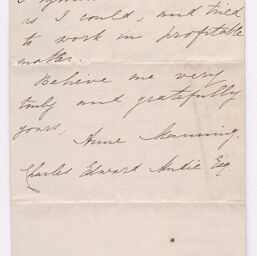 as I could, and tried
to work in profitable
matter.
Believe me very
truly and gratefully
yours,
Anne Manning.
Charles Edward Mudie Esq.